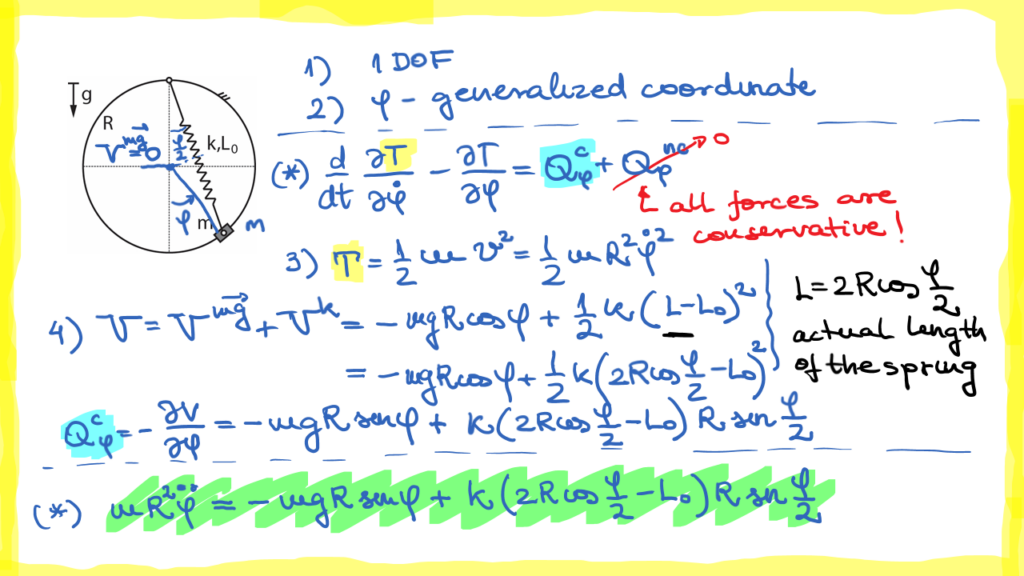 1) 1 DOF
2) φ - generalized coordinate
g
R
V^{m\vec{g}}=0
φ/2
k,L₀
φ
m
m
(*) d/dt ∂T/∂φ̇ - ∂T/∂φ = Q_φ^c + Q_φ^{nc} → 0
↑ all forces are
conservative!
3) T = 1/2 m v² = 1/2 m R² φ̇²
4) V = V^{m\vec{g}} + V^k = - mgR cos φ + 1/2 k (L-L₀)²
= - mgR cos φ + 1/2 k (2R cos φ/2 - L₀)²
L = 2R cos φ/2
actual length
of the spring
Q_φ^c = - ∂V/∂φ = - mgR sin φ + k (2R cos φ/2 - L₀) R sin φ/2
(*) mR² φ̈ = - mgR sin φ + k (2R cos φ/2 - L₀) R sin φ/2